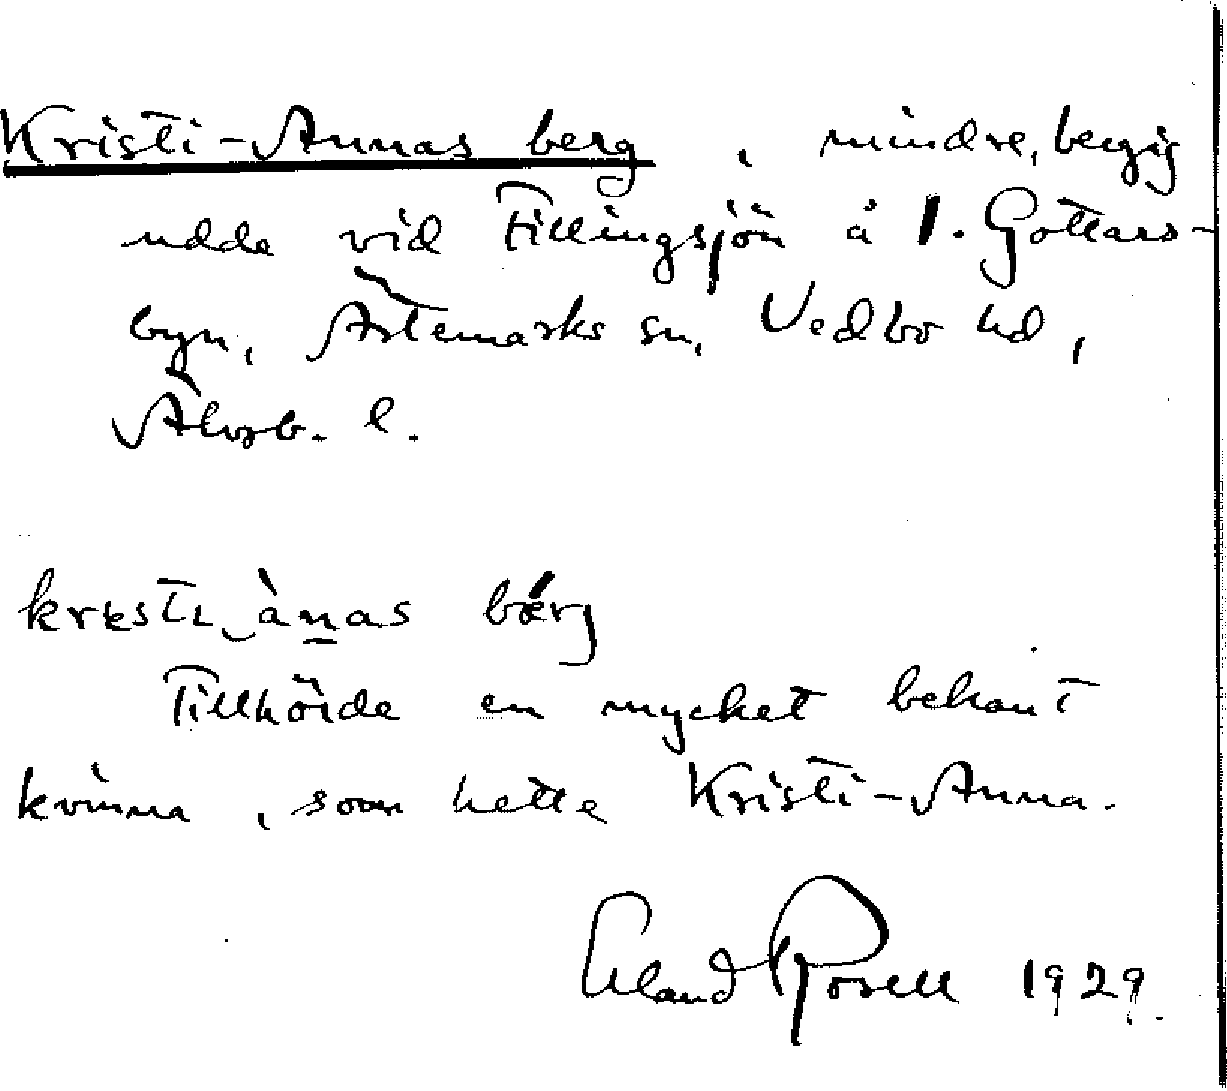 Kristi-Annas berg, mindre, bergig
udde vid Tillingsjön å 1. Gottars-
byn, Ärtemarks sn, Vedbo hd,
Älvsb. l.
krɩstɩ‿ànas bǽrg
Tillhörde en mycket bekant
kvinna, som hette Kristi-Anna.
Erland Rosell 1929.